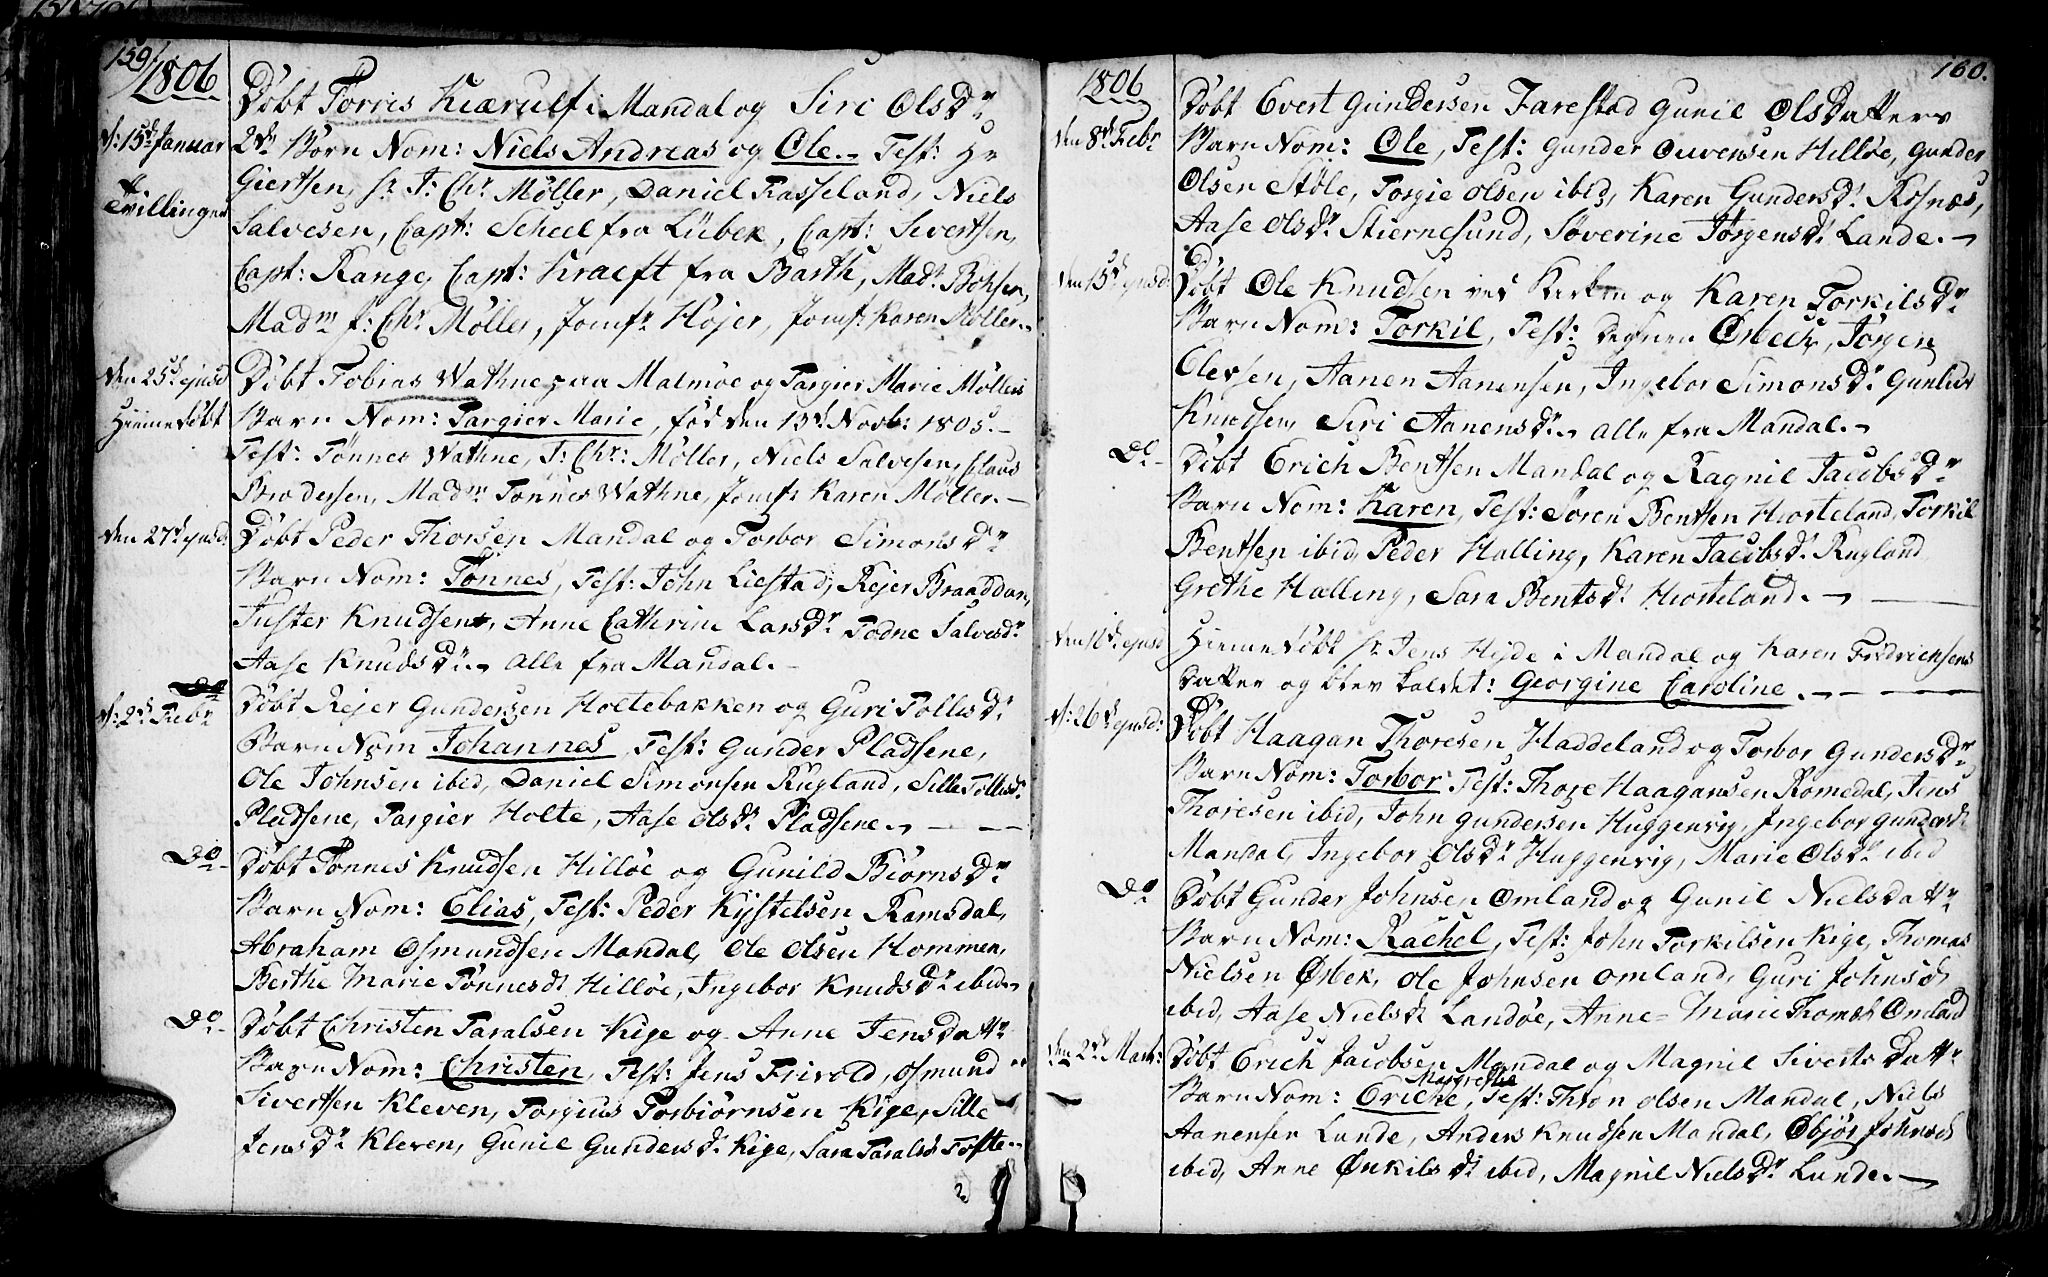 159/
1806
Døbt Torris Kiærulf i Mandal og Siri Olsdr
d: 15de Januar
2de Børn Nom: Niels Andreas og Ole. Test: Hr
Tvillinger
Giertsen, Sr J: Chr Møller, Daniel Fasseland, Niels
Salvesen, Capt: Scheel fra Lübek, Capt: Sivertsen,
Capt: Range, Capt: Kraeft fra Barth, Madm Bohsen,
Madm J: Chr Møller, Jomfr Höjer, Jomf: Karen Møller.
den 25de ejusd
Døbt Tobias Wathne paa Malmøe og Targier Marie Møllers
Hiemmedøbt
Barn Nom: Targier Marie, fød den 13de Novb: 1805.
Test: Tönnes Wathne, J: Chr: Møller, Niels Salvesen, Claus
Brodersen, Madm Tonnes Wathne, Jomfr Karen Møller.
den 27de ejusd.
Døbt Peder Thorsen Mandal og Torbor Simonsdr
Barn Nom: Tønnes, Test: John Liestad, Rejer Braaddan,
Juster Knudsen, Anne Cathrine Larsdr Todne Salvesdr
Aase Knudsdr. alle fra Mandal.
d: 2de Febr
Døbt Rejer Gundersen Holtebakken og Guri Tollisdr
Barn Nom Johannes, Test: Gunder Pladsene,
Ole Johnsen ibid, Daniel Simonsen Rugland, Sille Tollesdr
Pladsene, Targier Holte, Aase Olsdr Pladsene.
Do
Døbt Tønnes Knudsen Hilløe og Gunild Biørnsdr
Barn Nom: Elias, Test: Peder Kystelsen Ramsdal,
Abraham Osmundsen Mandal, Ole Olsen Hommen,
Berthe Marie Tønnesdr Hilløe, Ingebor Knudsdr ibid.
Do
Døbt Christen Taralsen Kige og Anne Jensdattr
Barn Nom: Christen, Test: Jens Frivold, Osmund
Sivertsen Kleven, Torgius Torbiørnsen Kige, Sille
Jensdr Kleven, Gunil Gundersdr Kige, Sara Taralsd Tofte.
160.
1806
Døbt Evert Gundersen Farestad Gunil Olsdatters
den 8de Febr
Barn Nom: Ole, Test: Gunder Ouvensen Hilløe, Gunder
Olsen Støle, Torgie Olsen ibid, Karen Gundersdr Rosnæs,
Aase Olsdr Stiernesund, Søverine Jørgensdr Lande.
den 15de ejusd.
Døbt Ole Knudsen ved Kirken og Karen Torkilsdr
Barn Nom: Torkil, Test: Degnen Ørbech, Jørgen
Olevsen, Aanen Aanensen, Ingebor Simonsdr Gunlur
Knudsen, Siri Aanensdr. alle fra Mandal.
Do
Døbt Erich Bentsen Mandal og Ragnil Jacobsdr
Barn Nom: Karen, Test: Søren Bentsen Hiorteland, Torkil
Bentsen ibid, Peder Halling, Karen Jacobsdr Rugland
Grethe Halling, Sara Bentsdr Hiorteland.
den 16de ejusd
Hiemmedøbt Sr Jens Hyde i Mandal og Karen Fridrichsens
Datter og blev kaldet: Georgine Caroline.
d: 26de ejusd:
Døbt Haagan Thoresen Haddeland og Torbor Gundersdr
Barn Nom: Torbor Test: Thore Haagansen Romedal, Jens
Thoresen ibid, John Gundersen Huggenvig, Ingebor Gundersdr
Mandal, Ingebor Olsdr Huggenvig, Marie Olsdr ibid
Do
Døbt Gunder Johnsen Omland og Gunil Nielsdattr
Barn Nom: Rachel, Test: John Torkilsen Kige, Thomas
Nielsen Ørbek, Ole Johnsen Omland, Guri Johnsd
ibid, Aase Nielsdr Landøe, Anne-Marie Thomæs Omland
den 2de Marti:
Døbt Erich Jacobsen Mandal og Magnil Siverts Dattr
Margrethe
Barn Nom: Eriche, Test: Thron Olsen Mandal, Niels
Aanensen Lunde, Anders Knudsen Mandal, Øbjør Johnsd
ibid, Anne Ønkilsdr ibid, Magnil Nielsdr Lunde.